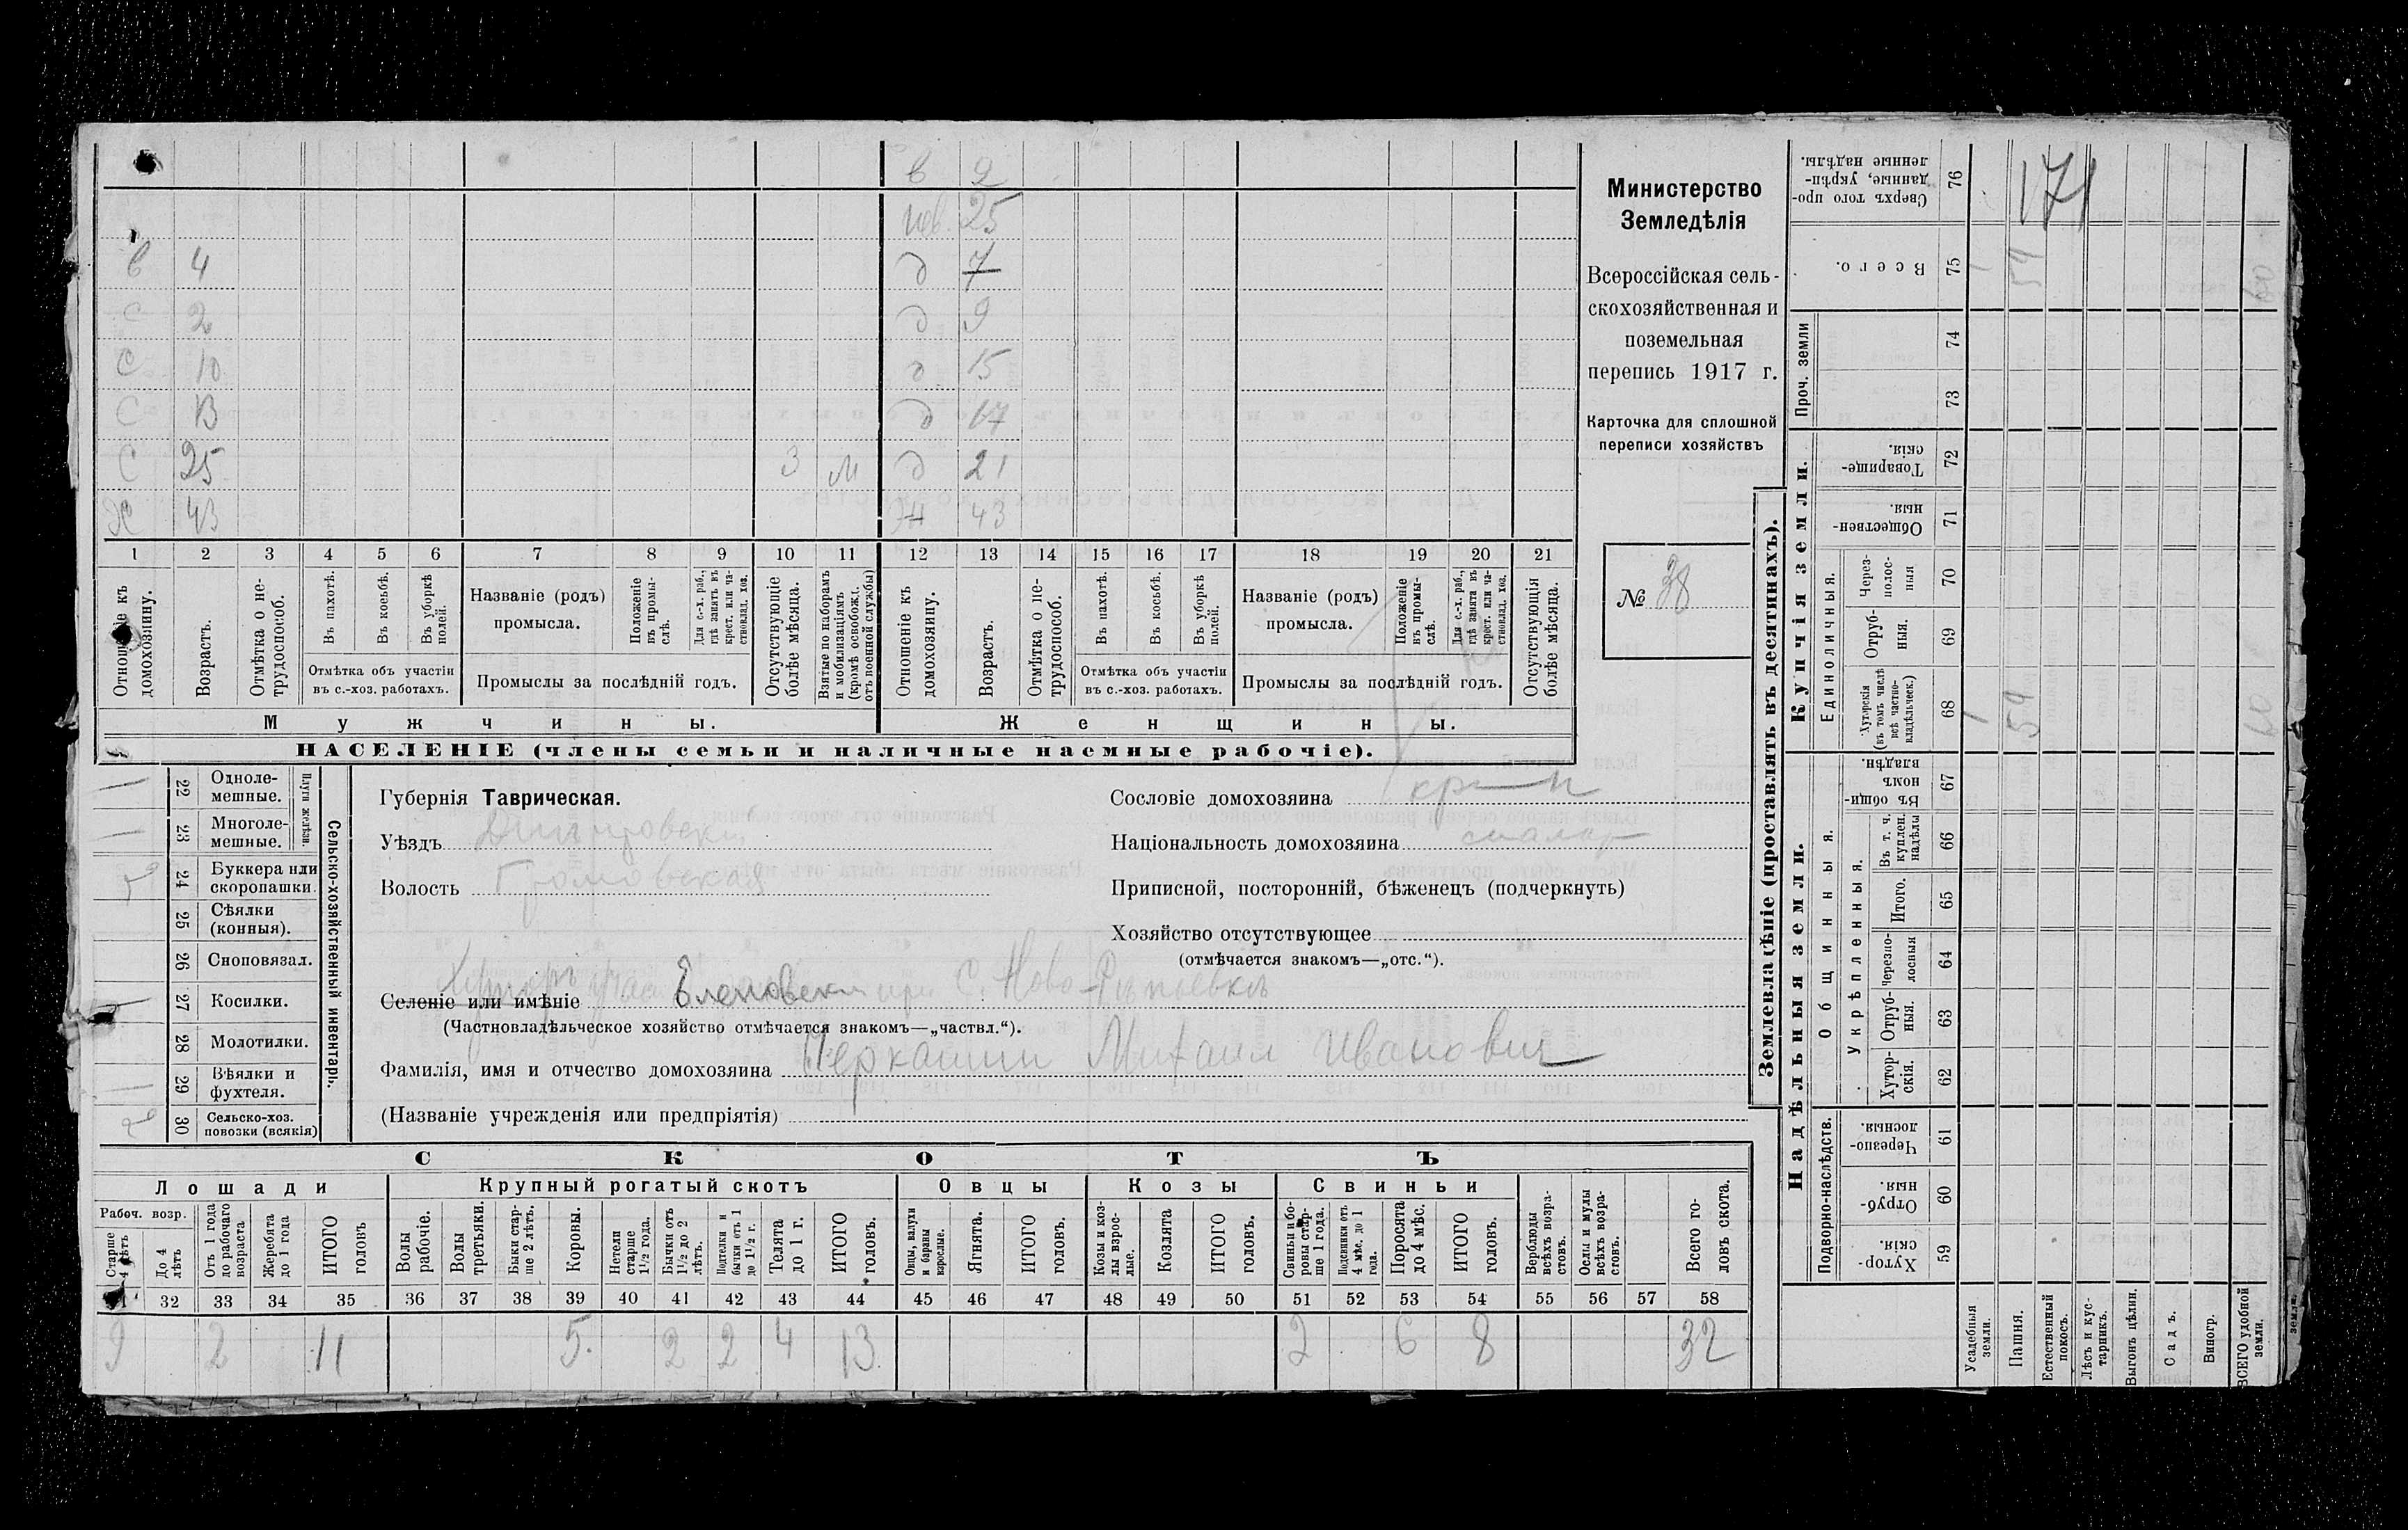 в 2
нев. 25
в 4 д 7
с 2 д 9
с 10 д 15
с 13 д 17
с 25 3 м д 21
Х 43 Ж 43
1 2 3 4 5 6 7 8 9 10 11 12 13 14 15 16 17 18 19 20 21
Отношеніе къ домохозяину.
Возрастъ.
Отмѣтка о нетрудоспособ.
Въ пахотѣ.
Въ косьбѣ.
Въ уборкѣ полей.
Отмѣтка объ участіи
въ с.-хоз. работахъ.
Названіе (родъ)
промысла.
Положеніе въ промыслѣ.
Для с.-х. раб., гдѣ занятъ въ крест. или частновлад. хоз.
Промыслы за послѣдній годъ.
Отсутствующіе болѣе мѣсяца.
Взятые по наборамъ и мобилизаціямъ (кромѣ освобожд. отъ военной службы)
Отношеніе къ домохозяину.
Возрастъ.
Отмѣтка о нетрудоспособ.
Въ пахотѣ.
Въ косьбѣ.
Въ уборкѣ полей.
Отмѣтка объ участіи
въ с.-хоз. работахъ.
Названіе (родъ)
промысла.
Положеніе въ промыслѣ.
Для с.-х. раб., гдѣ занята въ крест. или частновлад. хоз.
Промыслы за послѣдній годъ.
Отсутствующія болѣе мѣсяца.
Мужчины. Женщины.
НАСЕЛЕНІЕ (члены семьи и наличные наемные рабочіе).
Министерство
Земледѣлія
Всероссійская сель-
скохозяйственная и
поземельная
перепись 1917 г.
Карточка для сплошной
переписи хозяйствъ
№ 38
Сельско-хозяйственный инвентарь.
Плуги желѣзн.
22 Одноле-
мешные.
23 Многоле-
мешные.
24 Буккера или
скоропашки.
25 Сѣялки
(конныя).
26 Сноповязал.
27 Косилки.
28 Молотилки.
29 Вѣялки и
фухтеля.
30 Сельско-хоз.
повозки (всякія)
Губернія Таврическая.
Уѣздъ
Волость Громовская
Селеніе или имѣніе Хуторъ Еленовски при С. Ново-
(Частновладѣльческое хозяйство отмѣчается знакомъ—„частвл.“).
Фамилія, имя и отчество домохозяина Михаил Иванович
(Названіе учрежденія или предпріятія)
Сословіе домохозяина кр-н
Національность домохозяина малор
Приписной, посторонній, бѣженецъ (подчеркнуть)
Хозяйство отсутствующее
(отмѣчается знакомъ—„отс.“).
СКОТЪ
Лошади Крупный рогатый скотъ Овцы Козы Свиньи
Рабоч. возр.
Старше 4 лѣтъ
До 4 лѣтъ
Отъ 1 года до рабочаго возраста
Жеребята до 1 года
ИТОГО головъ
Волы рабочіе.
Волы третьяки.
Быки старше 2 лѣтъ.
Коровы.
Нетели старше 1½ года.
Бычки отъ 1½ до 2 лѣтъ.
Подтелки и бычки отъ 1 до 1½ г.
Телята до 1 г.
ИТОГО головъ.
Овцы, валухи и бараны взрослые.
Ягнята.
ИТОГО головъ.
Козы и козлы взрослые.
Козлята
ИТОГО головъ.
Свиньи и боровы старше 1 года.
Подсвинки отъ 4 мѣс. до 1 года.
Поросята до 4 мѣс.
ИТОГО головъ.
Верблюды всѣхъ возрастовъ.
Ослы и мулы всѣхъ возрастовъ.
Всего головъ скота.
32 33 34 35 36 37 38 39 40 41 42 43 44 45 46 47 48 49 50 51 52 53 54 55 56 57 58
9 2 11 5. 2 2 4 13 2 6 8 32
Землевладѣніе (проставлять въ десятинахъ).
Сверхъ того проданные, укрѣпленные надѣлы. 76 171
Всего. 75 1 59 60
Проч. земли 74
73
Купчія земли.
Товарищескія. 72
Общественныя. 71
Единоличныя.
Черезполосныя 70
Отрубныя. 69
Хуторскія (въ томъ числѣ всѣ частновладѣльческ.) 68 1 59 60
Надѣльныя земли.
Общинныя.
Въ общиномъ владѣн. 67
Укрѣпленныя.
Въ т. ч. куплен. надѣлы 66
Итого. 65
Черезполосныя 64
Отрубныя. 63
Хуторскія. 62
Подворно-наслѣдств.
Черезполосныя. 61
Отрубныя. 60
Хуторскія. 59
Усадебныя земли.
Пашня.
Естественный покосъ.
Лѣсъ и кустарникъ.
Выгонъ цѣлин.
Садъ.
Виногр.
ВСЕГО удобной земли.